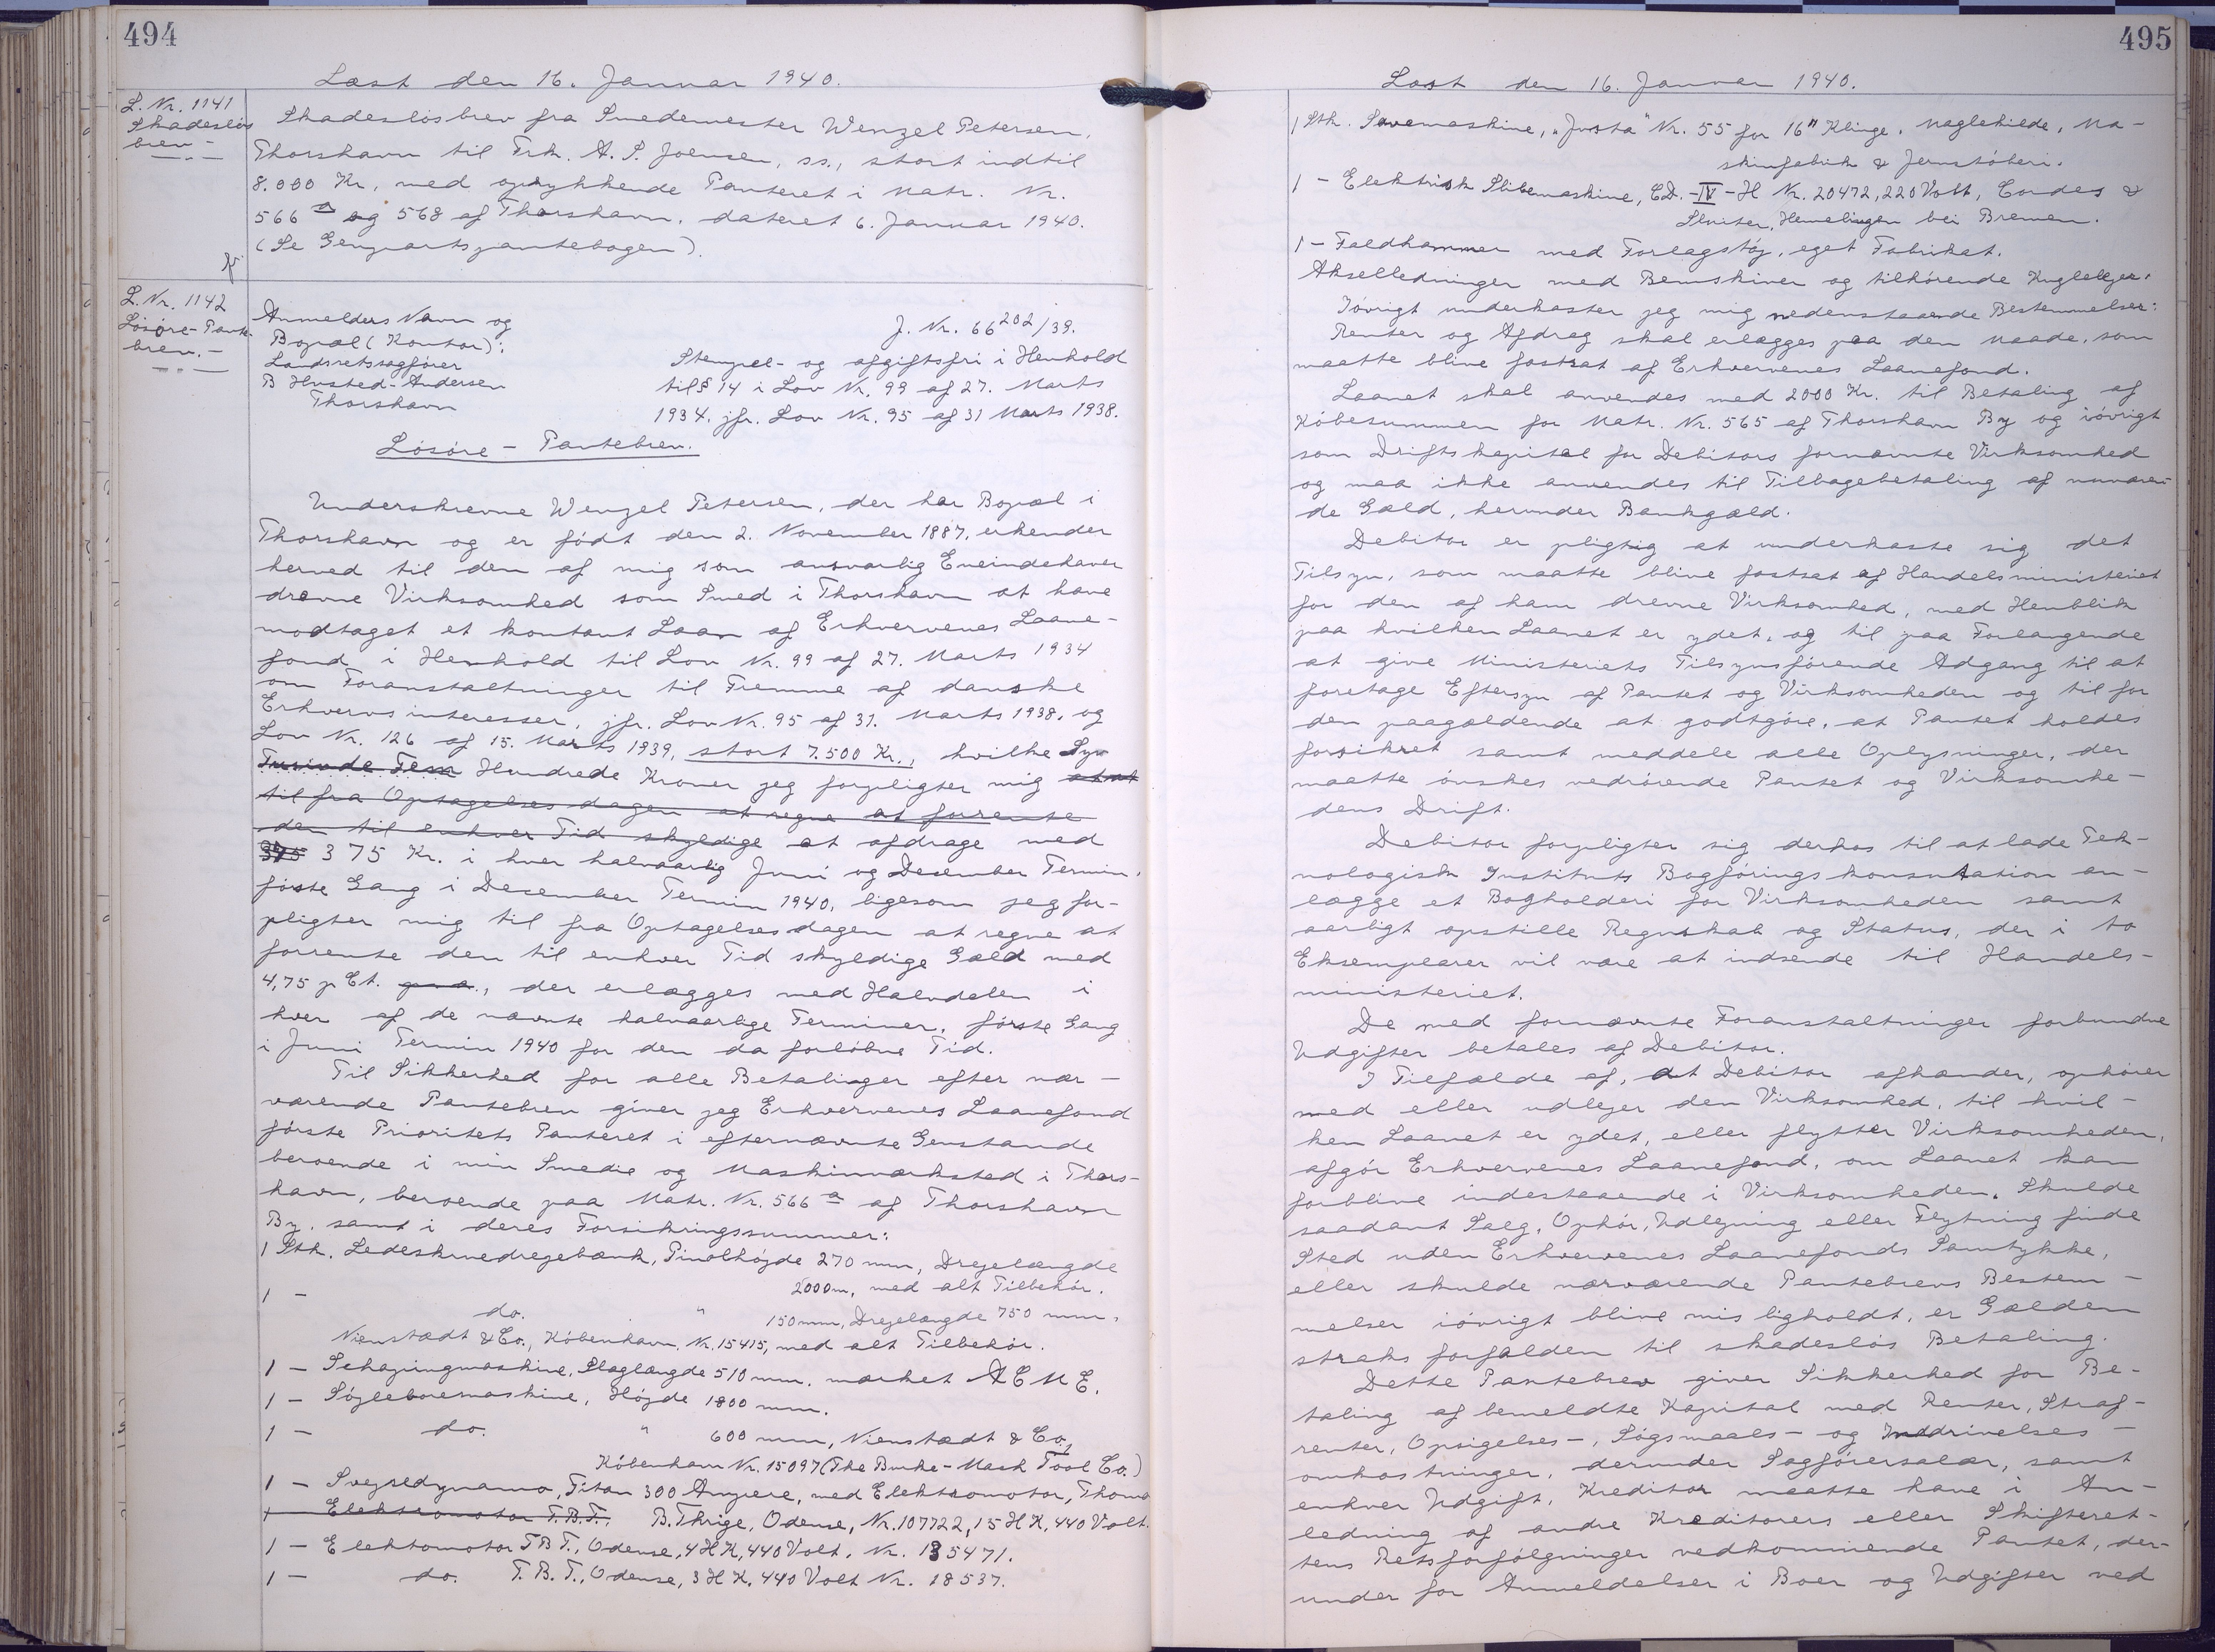 494
Læst den 16. Januar 1940.
L. Nr. 1141
Skadesløs
brev -
Skadesløsbrev fra Smedemester Wenzel Petersen,
Thorshavn til Frk. A. P. Joensen, ss., stort indtil
8.000 Kr, med oprykkende Panteret i Matr. Nr.
566 a og 568 af Thorshavn, dateret 6. Januar 1940.
(Se Genpartspantebogen).
L. Nr. 1142
Løsøre-Pante-
brev.-
Anmelders Navn og
Bopæl (Kontor):
Landsretssagfører
B Husted-Andersen
Thorshavn
J. Nr. 66 202/39.
Stempel- og afgiftsfri i Henhold
til § 14 i Lov Nr. 99 af 27. Marts
1934, jfr. Lov Nr. 95 af 31 Marts 1938.
Løsøre - Pantebrev.
Underskrevne Wenzel Petersen, der har Bopæl i
Thorshavn og er født den 2. November 1887, erkender
herved til den af mig som ansvarlig Eneindehaver
drevne Virksomhed som Smed i Thorshavn at have
modtaget et kontant Laan af Erhvervenes Laane-
fond i Henhold til Lov Nr. 99 af 27. Marts 1934
om Foranstaltninger til Fremme af danske
Erhvervsinteresser, jfr. Lov Nr. 95 af 31. Marts 1938, og
Lov Nr. 126 af 15. Marts 1939, stort 7.500 Kr., hvilke Syv
Tusinde Fem Hundrede Kroner jeg forpligter mig
til fra Optagelsesdagen at regne at forrente
den til enhver Tid skyldige at afdrage med
375 375 Kr. i hver halvaarlig Juni og December Termin,
første Gang i December Termin 1940, ligesom jeg for-
pligter mig til fra Optagelsesdagen at regne at
forrente den til enhver Tid skyldige Gæld med
4,75 p Ct. p.a., der erlægges med Halvdelen i
hver af de nævnte halvaarlige Terminer, første Gang
i Juni Termin 1940 for den da forløbne Tid.
Til Sikkerhed for alle Betalinger efter nær-
værende Pantebrev giver jeg Erhvervenes Laanefond
første Prioritets Panteret i efternævnte Genstande
beroende i min Smedie og Maskinværksted i Thors-
havn, beroende paa Matr. Nr. 566 a af Thorshavn
By, samt i deres Forsikringssummer:
1 Stk. Ledeskruedrejebænk, Pinolhøjde 270 mm, Drejelængde
2000m, med alt Tilbehør.
1 - do. " 150 mm, Drejelængde 750 mm,
Nienstædt & Co., København, Nr. 15415, med alt Tilbehør.
1 - Schapingmaskine, Slaglængde 510 mm. mærket A E M E.
1 - Søjleboremaskine, Højde 1800 mm.
1 - do. " 600 mm, Nienstædt & Co.,
København Nr. 15097 (The Burke-Mash Tool Co.)
1 - Svejsedynamo, Titan 300 Ampere, med Elektromotor, Thomas
1 Elektromotor T.B.T., B. Thrige, Odense, Nr. 107722, 15 HK, 440 Volt.
1 - Elektomotor T B T., Odense, 4 HK, 440 Volt. Nr. 135471.
1 - do. T. B. T., Odense, 3 HK, 440 Volt Nr. 18537.
495
Læst den 16. Januar 1940.
1 Stk. Savemaskine, "Justa" Nr. 55 for 16" Klinge, Naglekilde, Ma-
skinfabrik & Jernstøberi.
1 - Elektrisk Slibemaskine, C.D.-IV-H Nr. 20472, 220 Volt, Cordes &
Sluiter, Hemelingen bei Bremen.
1 - Faldhammer med Forlagstøj, eget Fabrikat.
Akselledninger med Remskiver og tilhørende Kuglelejer.
Iøvrigt underkaster jeg mig nedenstaaende Bestemmelser:
Renter og Afdrag skal erlægges paa den Maade, som
maatte blive fastsat af Erhvervenes Laanefond.
Laanet skal anvendes med 2000 Kr. til Betaling af
Købesummen for Matr. Nr. 565 af Thorshavn By og iøvrigt
som Driftskapital for Debitors fornævnte Virksomhed
og maa ikke anvendes til Tilbagebetaling af nuværen-
de Gæld, herunder Bankgæld.
Debitor er pligtig at underkaste sig det
Tilsyn, som maatte blive fastsat af Handelsministeriet
for den af ham drevne Virksomhed, med Henblik
paa hvilken Laanet er ydet, og til paa Forlangende
at give Ministeriets Tilsynsførende Adgang til at
foretage Eftersyn af Pantet og Virksomheden og til for
den paagældende at godtgøre, at Pantet holdes
forsikret samt meddele alle Oplysninger, der
maatte ønskes vedrørende Pantet og Virksomhe-
dens Drift.
Debitor forpligter sig derhos til at lade Tek-
nologisk Instituts Bogføringskonsultation an-
lægge et Bogholderi for Virksomheden samt
aarligt opstille Regnskab og Status, der i to
Eksemplarer vil være at indsende til Handels-
ministeriet.
De med fornævnte Foranstaltninger forbundne
Udgifter betales af Debitor.
I Tilfælde af, at Debitor afhænder, ophører
med eller udlejer den Virksomhed, til hvil-
ken Laanet er ydet, eller flytter Virksomheden,
afgør Erhvervenes Laanefond, om Laanet kan
forblive indestaaende i Virksomheden. Skulde
saadant Salg, Ophør, Udlejning eller Flytning finde
Sted uden Erhvervenes Laanefonds Samtykke,
eller skulde nærværende Pantebrevs Bestem-
melser iøvrigt blive misligholdt, er Gælden
straks forfalden til skadesløs Betaling.
Dette Pantebrev giver Sikkerhed for Be-
taling af bemeldte Kapital med Renter, Straf-
renter, Opsigelses-, Søgsmaals- og Inddrivelses-
omkostninger, derunder Sagførersalær, samt
enhver Udgift, Kreditor maatte have i An-
ledning af andre Kreditorers eller Skifteret-
tens Retsforfølgninger vedkommende Pantet, der-
under for Anmeldelser i Boer og Udgifter ved